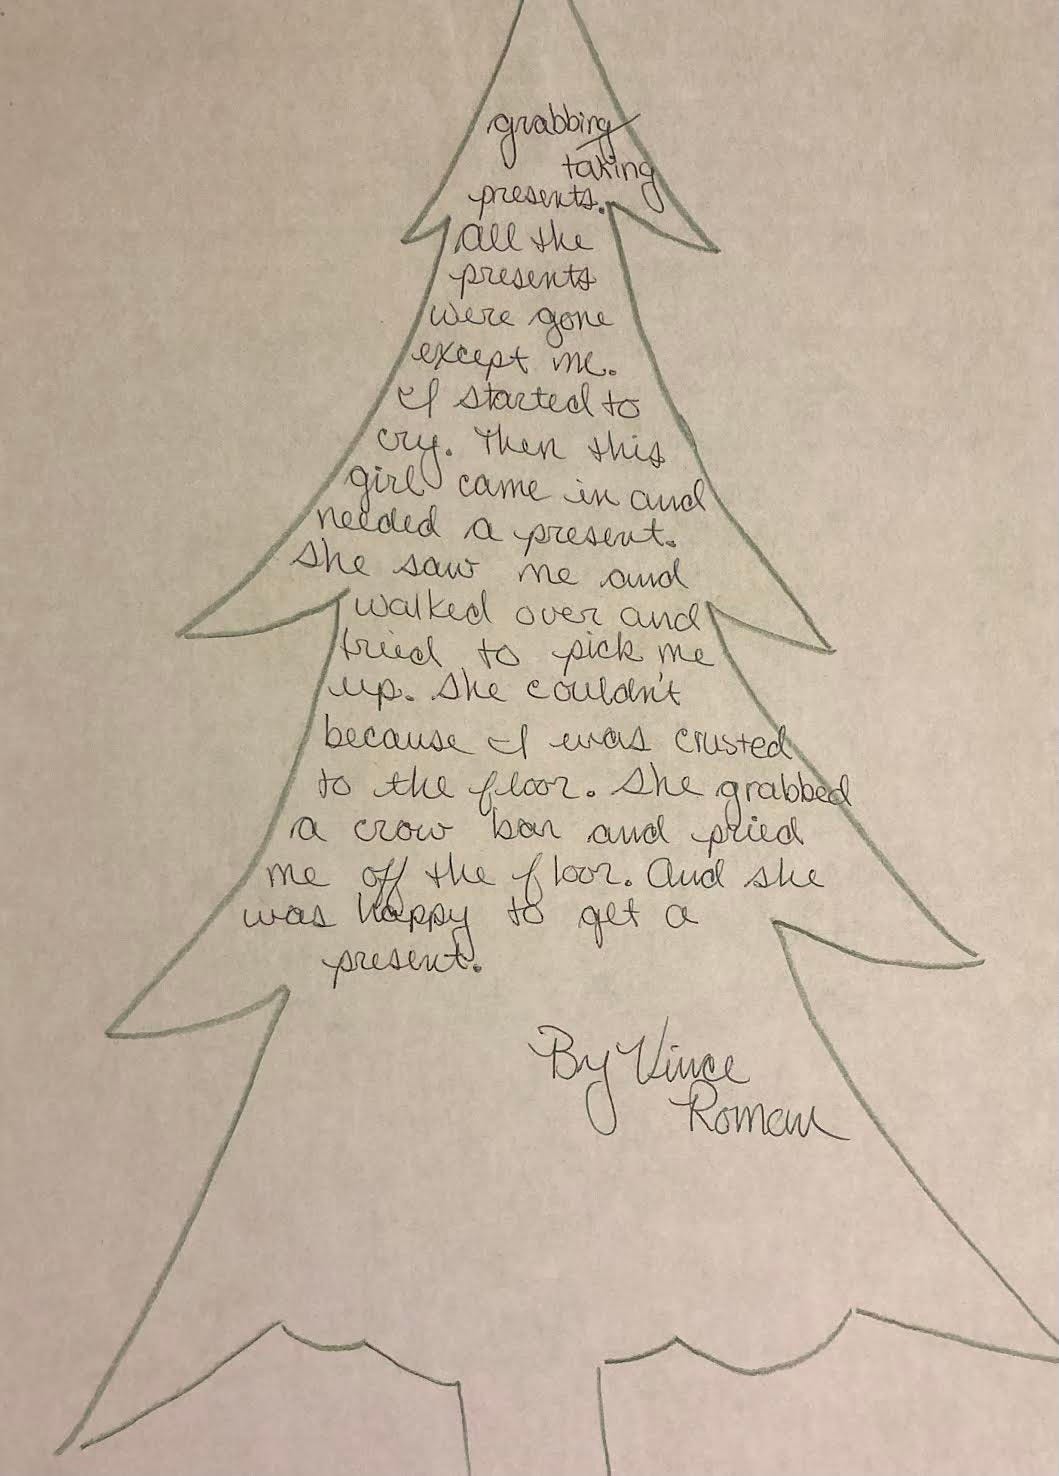 grabbing/
taking
presents.
All the
presents
were gone
except me.
I started to
cry. Then this
girl came in and
needed a present.
She saw me and
walked over and
tried to pick me
up. She couldn't
because I was crusted
to the floor. She grabbed
a crow bar and pried
me off the floor. And she
was happy to get a
present.
By Vince
Roman